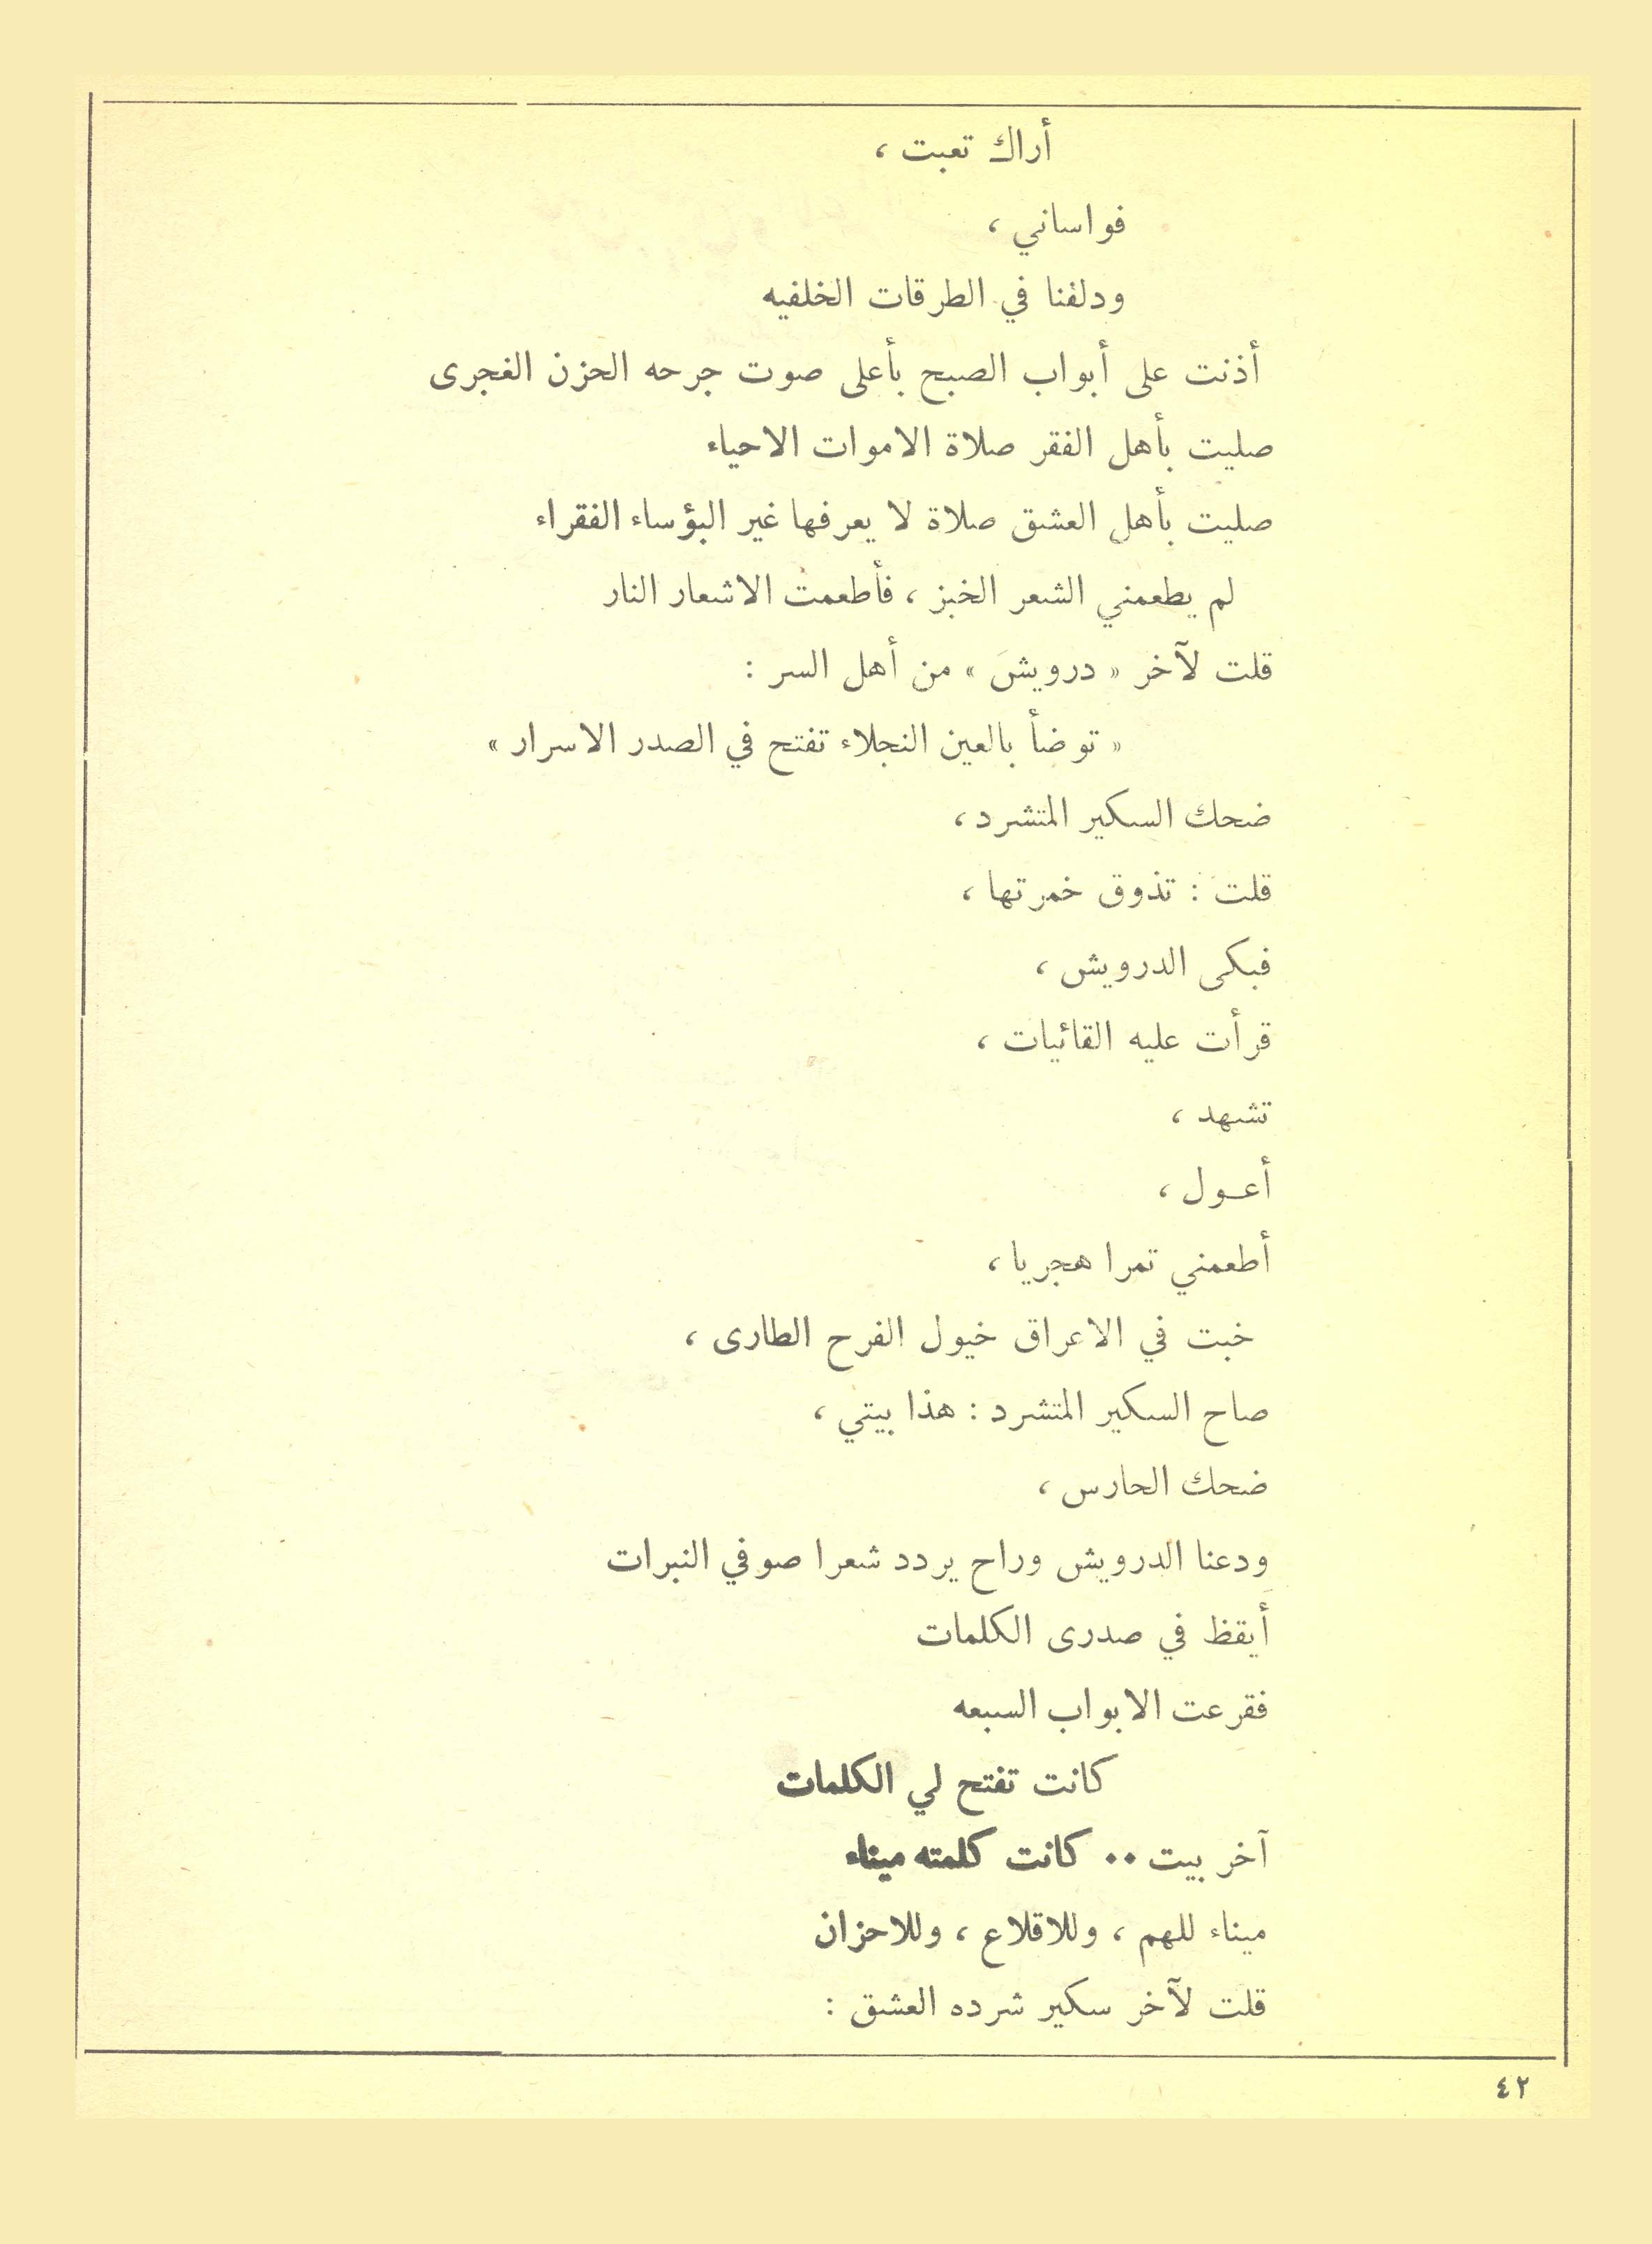 أراك تعبت ،
فواساني ،
ودلفنا في الطرقات الخلفيه
أذنت على أبواب الصبح بأعلى صوت جرحه الحزن الفجرى
صليت بأهل الفقر صلاة الاموات الاحياء
صليت بأهل العشق صلاة لا يعرفها غير البؤساء الفقراء
لم يطعمني الشعر الخبز ، فأطعمت الاشعار النار
قلت لآخر « درويش » من أهل السر :
« توضأ بالعين النجلاء تفتح في الصدر الاسرار »
ضحك السكير المتشرد ،
قلت : تذوق خمرتها ،
فبكى الدرويش ،
قرأت عليه القائيات ،
تشهد ،
أعـول ،
أطعمني تمرا هجريا ،
خبت في الاعراق خيول الفرح الطارى ،
صاح السكير المتشرد : هذا بيتي ،
ضحك الحارس ،
ودعنا الدرويش وراح يردد شعرا صوفي النبرات
أيقظ في صدرى الكلمات
فقرعت الابواب السبعه
كانت تفتح لي الكلمات
آخر بيت ٠٠ كانت كلمته ميناء
ميناء للهم ، وللاقلاع ، وللاحزان
قلت لآخر سكير شرده العشق :
٤٢